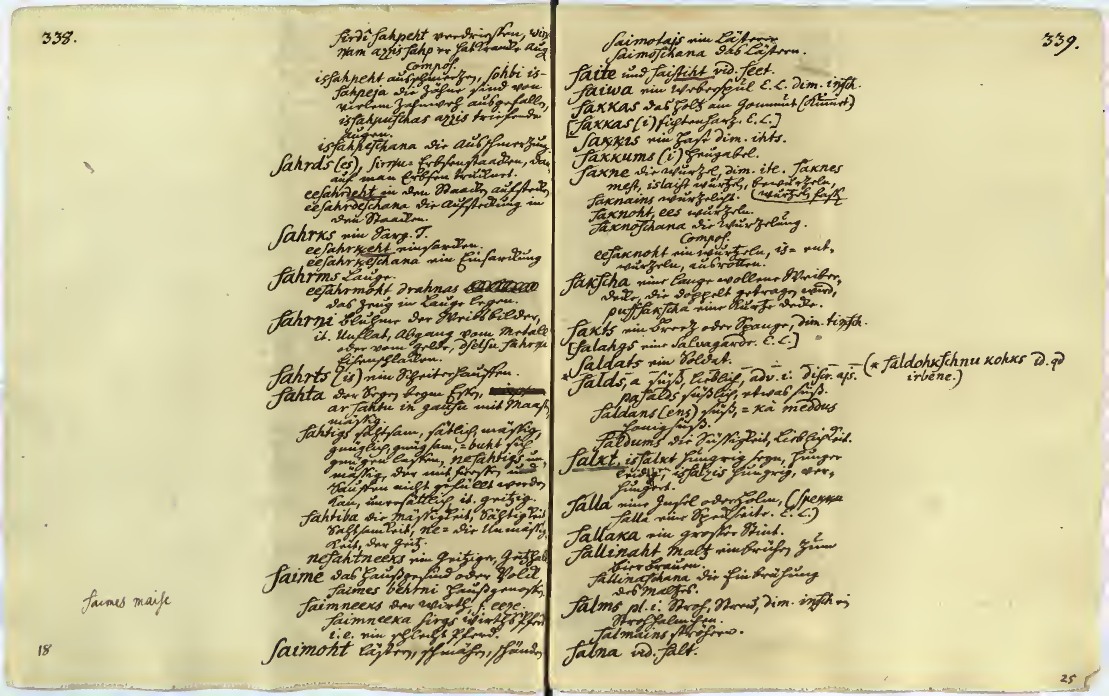 338.
sirdi sahpeht verdriesten, win
nam azzis sahp er hat kranke Aug
Compos.
issahpeht ausschmertzen, sohbi is-
sahpeja die Zähne sind von
vielem Zahnweh ausgefalln,
issahpuschas azzis triefende
Augen.
issahpeschana die Ausschmertzung.
Sahrds (es), sirnu = Erbsenstaaken, da
auf man Erbsen trücknet.
eesahrdeht in den Staaken aufstecken
eesahrdeschana die Aufsteckung in
den Staaken.
Sahrks ein Sarg. T.
eesahrkeht einsarken.
eesahrkeschana ein Einsarckung
Sahrms Lauge.
eesahrmoht drahnas
das Zeug in Lauge legen.
Sahrni Bluhme der Weibsbilder,
it. Unflat, Abgang vom Metall
oder vom Gelde, dselsu sahrni
Eisenschlacken.
Sahrts (is) ein Scheiterhauffen.
Sahta der Segen beym Essen,
ar sahtu in gausu mit Maass
mässig.
Sahtigs sättsam, sätlich, mässig,
gnüglich, gnugsam, = buht sich
genügen lassen, nesahtigs un-
mässig, der mit fressen und
Sauffen nicht gefüllet werden
kan, unersättlich it. geitzig.
Sahtiba die Mässigkeit, Sättigkeit
Sattsamkeit, ne = die Unmässig
keit, der Geitz.
nesahtneeks ein Geitziger, Geitzhals
Saime das Haussgesind oder Volck
Saimes behrni Haussgenossen
Saimneeks der Wirth, f. eeze.
Saimneeka sirgs Wirths Pferd
i.e. ein schlecht Pferd.
Saimoht lästern, schmähen, schänden
Saimes maise
18
339.
Saimotais ein Lästerer
Saimoschana das Lästern.
Saite und saistiht vid. seet.
Saiwa ein Weberspul E.L. dim. insch.
Sakkas das Holtz am Gommut (Kummet)
[Sakkas (i) fichtenhartz. E.L.]
Sakkis ein Hase dim. ihts.
Sakkums (i) Heugabel.
Sakne die Wurtzel, dim. ite. Saknes
mest, islaist Wurtzel, bewurtzeln,
Saknains wurtzelicht. (wurtzel fasst
Saknoht, ees wurtzeln.
Saknoschana die Wurtzelung.
Compos.
eesaknoht einwurtzeln, is = ent-
wurtzeln, ausrotten.
Sakscha eine lange wollene Weiber-
decke, die doppelt getragen wird,
pussakscha eine kurtze decke.
Sakts ein Breetz oder Spange, dim. tinsch.
[Salahgs eine Salvagarde. E.L.]
Saldats ein Soldat.
Salds, a süss, lieblich, adv. i. discr. ajs. — (* Saldohkschnu kohks D. q
irbene.)
pasalds süsslich, etwas süss.
Saldans (ens) süss, = ka meddus
honigsüss.
Saldums die Süssigkeit, Lieblichkeit.
Salkt, issalkt hungrig seyn, Hunger
leiden, issalzis hungrig, ver-
hungert.
Salla eine Insel oder Holm, (Spekka
salla eine Speckseite. E.L.)
Sallaka ein grosser Stint.
Sallinaht Maltz einbrühen, zum
Bierbrauen.
Sallinaschana die Einbrühung
des Maltzes.
Salms pl. i. Stroh, Streu, dim. insch ein
Strohhalmchen.
Salmains ströhern.
Salna vid. Salt.
25